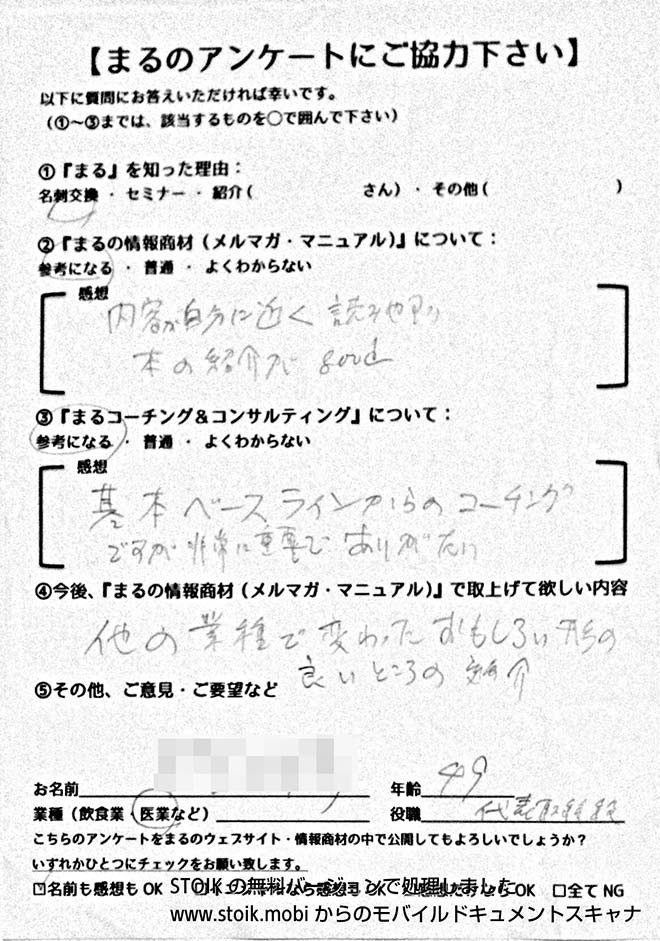 【まるのアンケートにご協力下さい】
以下に質問にお答えいただければ幸いです。
(①～③までは、該当するものを○で囲んで下さい)
①『まる』を知った理由：
名刺交換 ・ セミナー ・ 紹介( さん) ・ その他( )
②『まるの情報商材(メルマガ・マニュアル)』について：
参考になる ・ 普通 ・ よくわからない
感想
内容が自分に近く 読みやすい
本の紹介が good
③『まるコーチング＆コンサルティング』について：
参考になる ・ 普通 ・ よくわからない
感想
基本ベースラインからのコーチング
ですが 非常に重要で ありがたい
④今後、『まるの情報商材(メルマガ・マニュアル)』で取上げて欲しい内容
他の業種で変わった おもしろい 形の
良いところの紹介
⑤その他、ご意見・ご要望など
お名前 年齢 49
業種(飲食業・医業など) 役職 代表取締役
こちらのアンケートをまるのウェブサイト・情報商材の中で公開してもよろしいでしょうか？
いずれかひとつにチェックをお願い致します。
☑名前も感想も OK なら感想も OK 感想だけなら OK □全て NG
STOIK の無料バージョンで処理しました
www.stoik.mobi からのモバイルドキュメントスキャナ